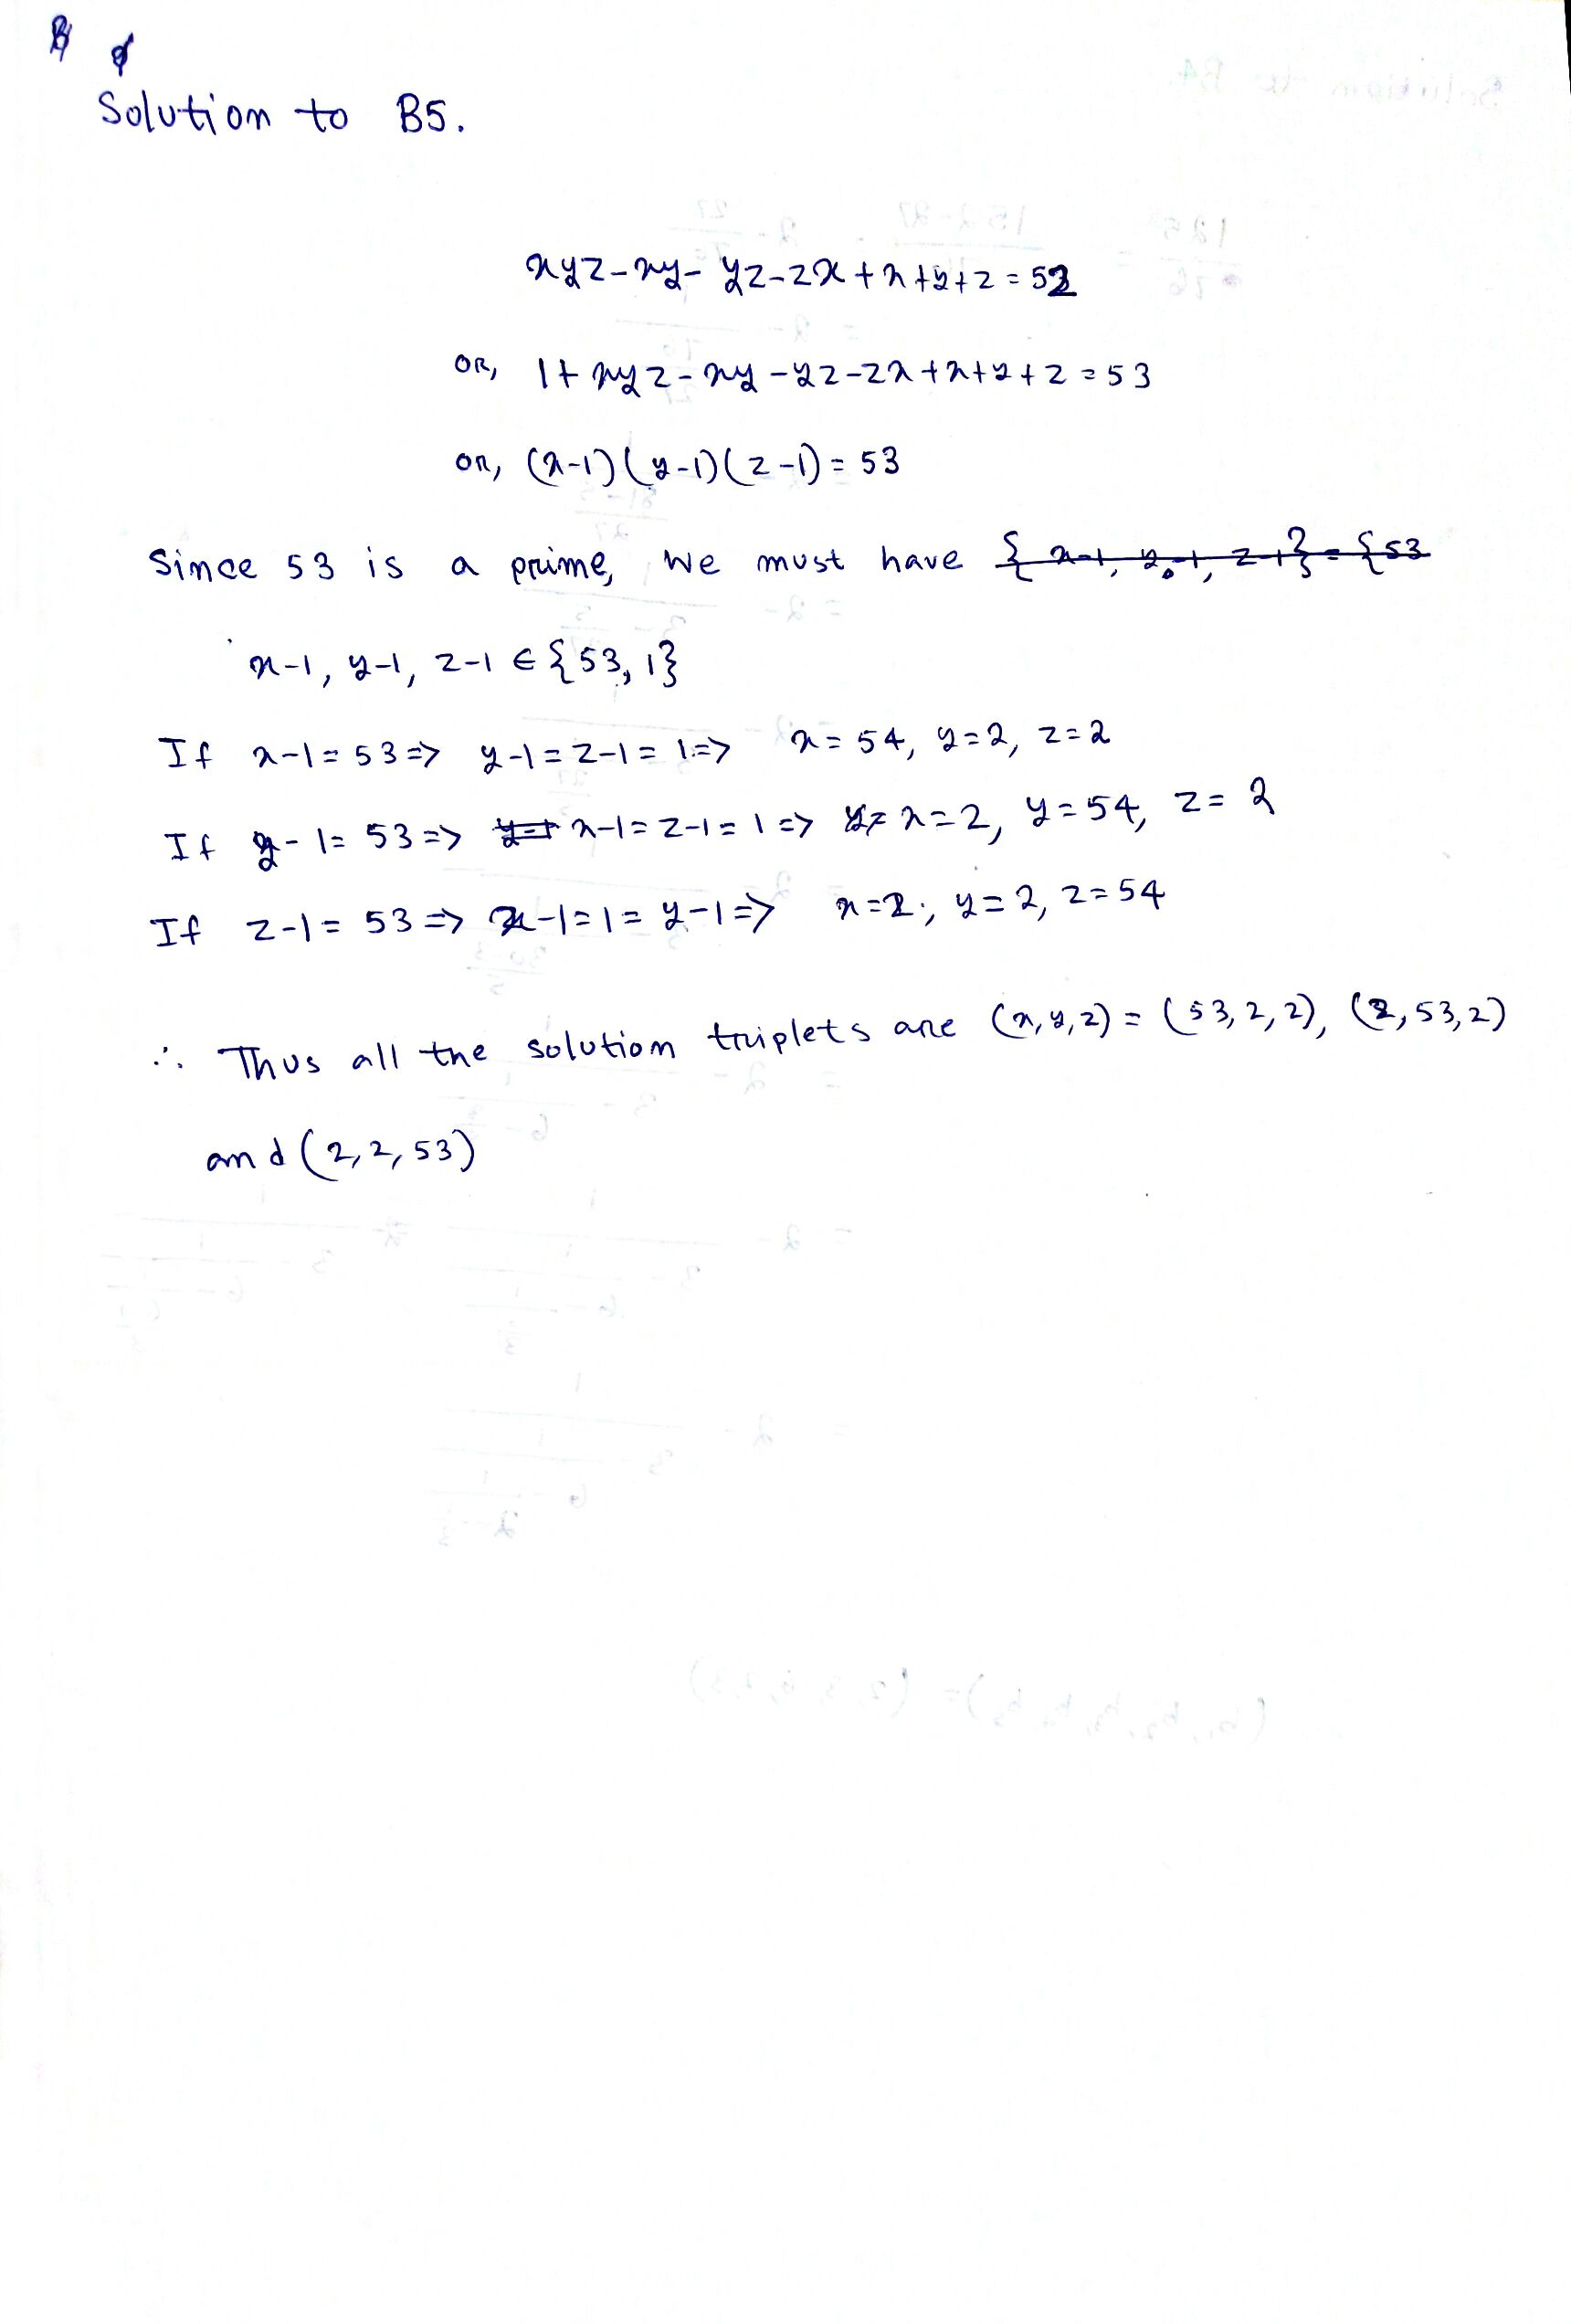 Solution to B5.
xyz-xy-yz-zx+x+y+z=52
or, 1+xyz-xy-yz-zx+x+y+z=53
or, (x-1)(y-1)(z-1)=53
Since 53 is a prime, we must have {x-1, y-1, z-1}={53
x-1, y-1, z-1 ∈ {53, 1}
If x-1=53=> y-1=z-1=1=> x=54, y=2, z=2
If y-1=53=> x-1=z-1=1=> x=2, y=54, z=2
If z-1=53=> x-1=1=y-1=> x=2, y=2, z=54
∴ Thus all the solution triplets are (x,y,z)=(53,2,2), (2,53,2)
and (2,2,53)